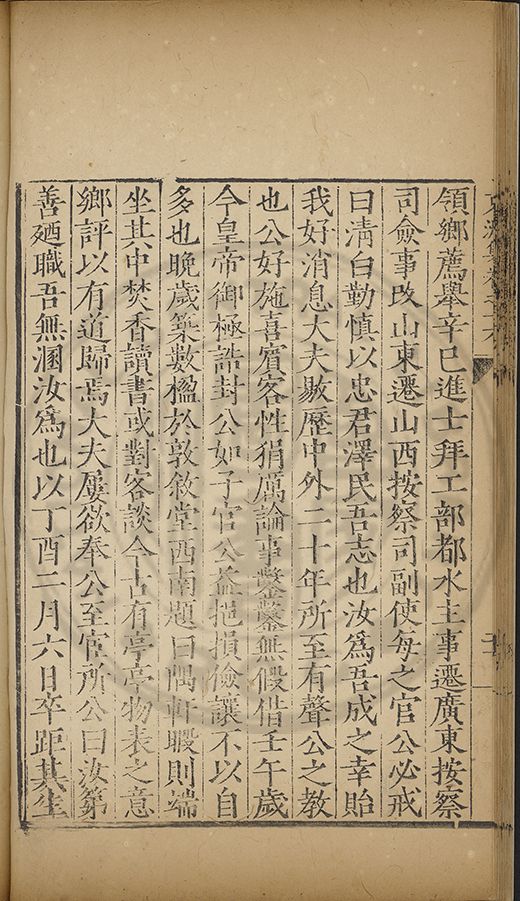 領鄉薦舉辛巳進士拜工部都水主事遷廣東按察
司僉事改山東遷山西按察司副使每之官公必戒
曰淸白勤慎以忠君澤民吾志也汝爲吾成之幸貽
我好消息大夫敭歷中外二十年所至有聲公之教
也公好施喜賓客性狷厲論事鑿鑿無假借壬午歲
今皇帝御極誥封公如子官公益挹損儉讓不以自
多也晚歲築數楹於敦敘堂西南題曰隅軒暇則端
坐其中焚香讀書或對客談今古有亭亭物表之意
鄉評以有道歸焉大夫屢欲奉公至官所公曰汝第
善廼職吾無溷汝爲也以丁酉二月六日卒距其生